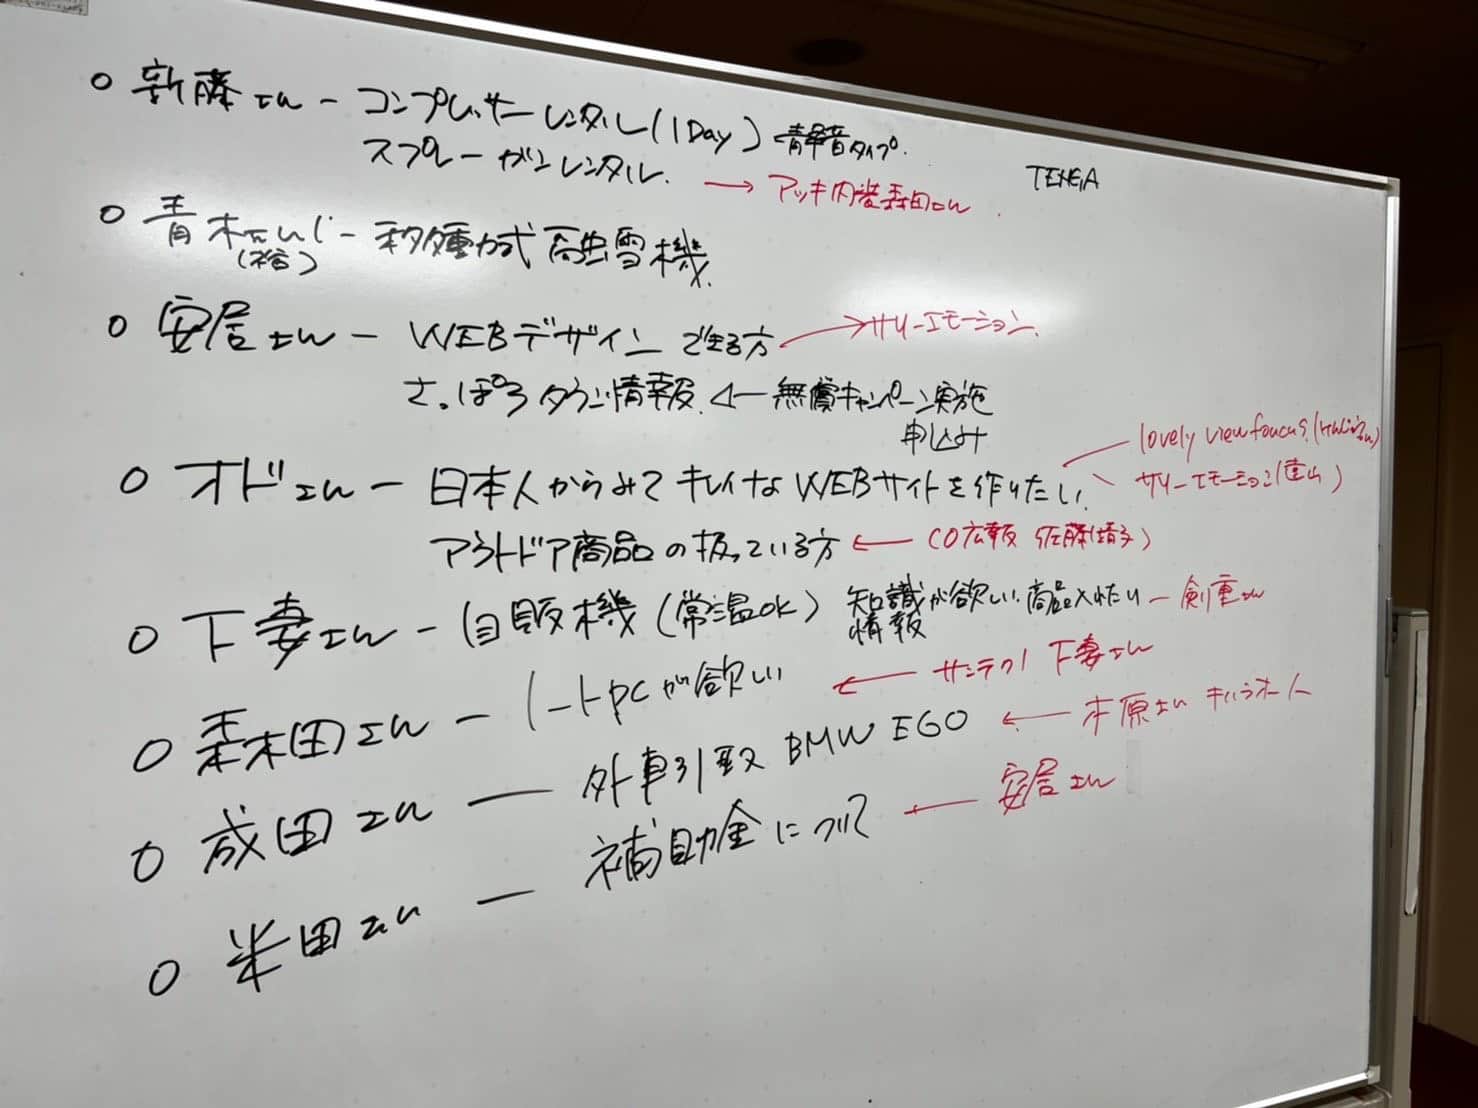 ○ 新藤さん - コンプレッサーレンタル(1Day) 静音タイプ.
スプレーガンレンタル. → アッキ内装森田さん
TEHEIA
○ 青木さん - 移動式融雪機
(裕)
○ 安居さん - WEBデザインできる方 → サリーエモーション
さっぽろタウン情報. ← 無償キャンペーン実施
申込み
lovely view foucus.
○ オドさん - 日本人からみてキレイなWEBサイトを作りたい. サリーエモーション(直山)
アウトドア商品の扱っている方 ← CO広報 佐藤(靖子)
○ 下妻さん - 自販機(常温OK) 知識が欲しい. 商品入れたり - 剣重さん
情報
○ 森田さん - ノートpcが欲しい ← サンテクノ 下妻さん
○ 成田さん - 外車引取 BMW EGO ← 木原さん
○ 米田さん - 補助金について ← 安居さん